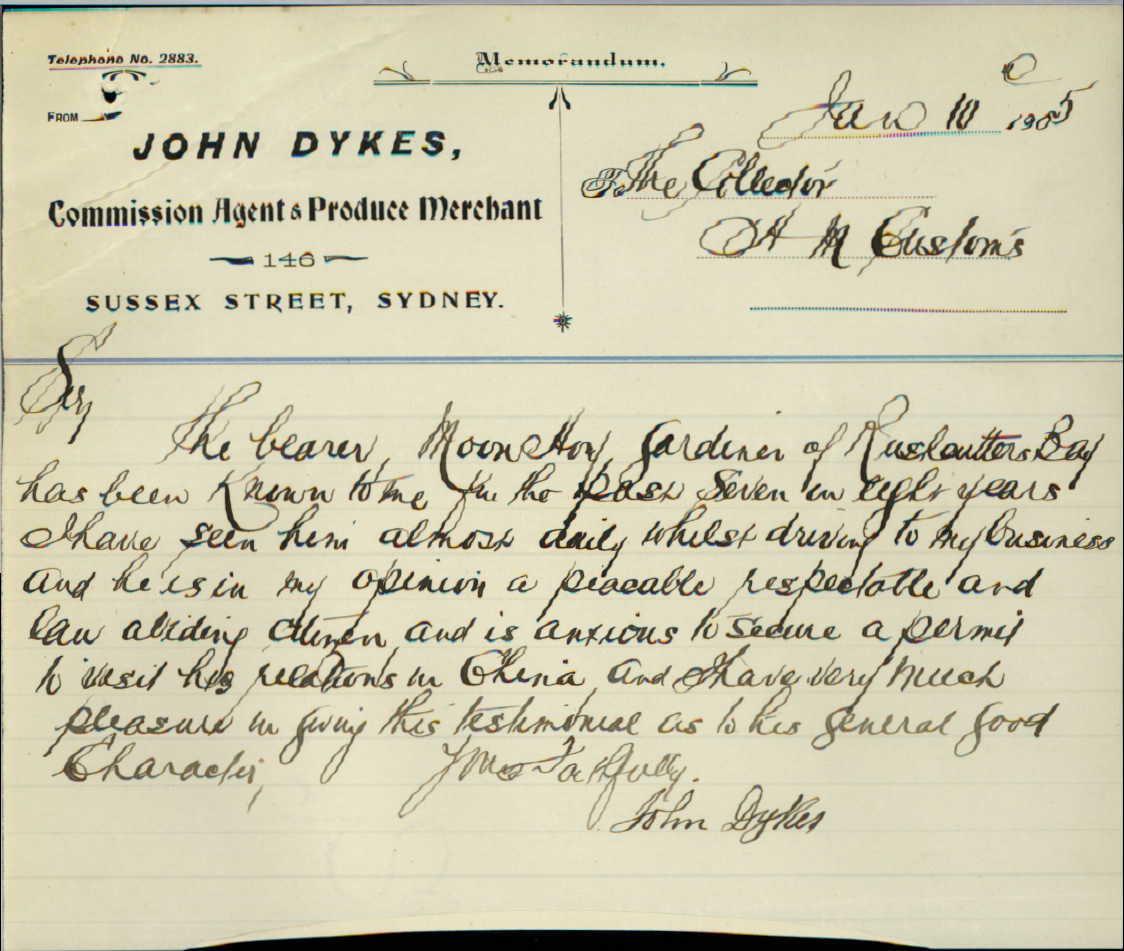 Telephone No. 2883.
Memorandum.
FROM
JOHN DYKES,
Commission Agent & Produce Merchant
146
SUSSEX STREET, SYDNEY.
Jan 10 1905
To The Collector
H M Customs
Sir
The bearer, Moon Hoy, Gardiner of Rushcutters Bay
has been Known to me for the past Seven or eight years
I have seen him almost daily whilst driving to my business
and he is in my opinion a peacable respectable and
law abiding citizen, and is anxious to secure a permit
to visit his relations in China, and I have very much
pleasure in giving this testimonial as to his general good
Character,
Yours Faithfully.
John Dykes